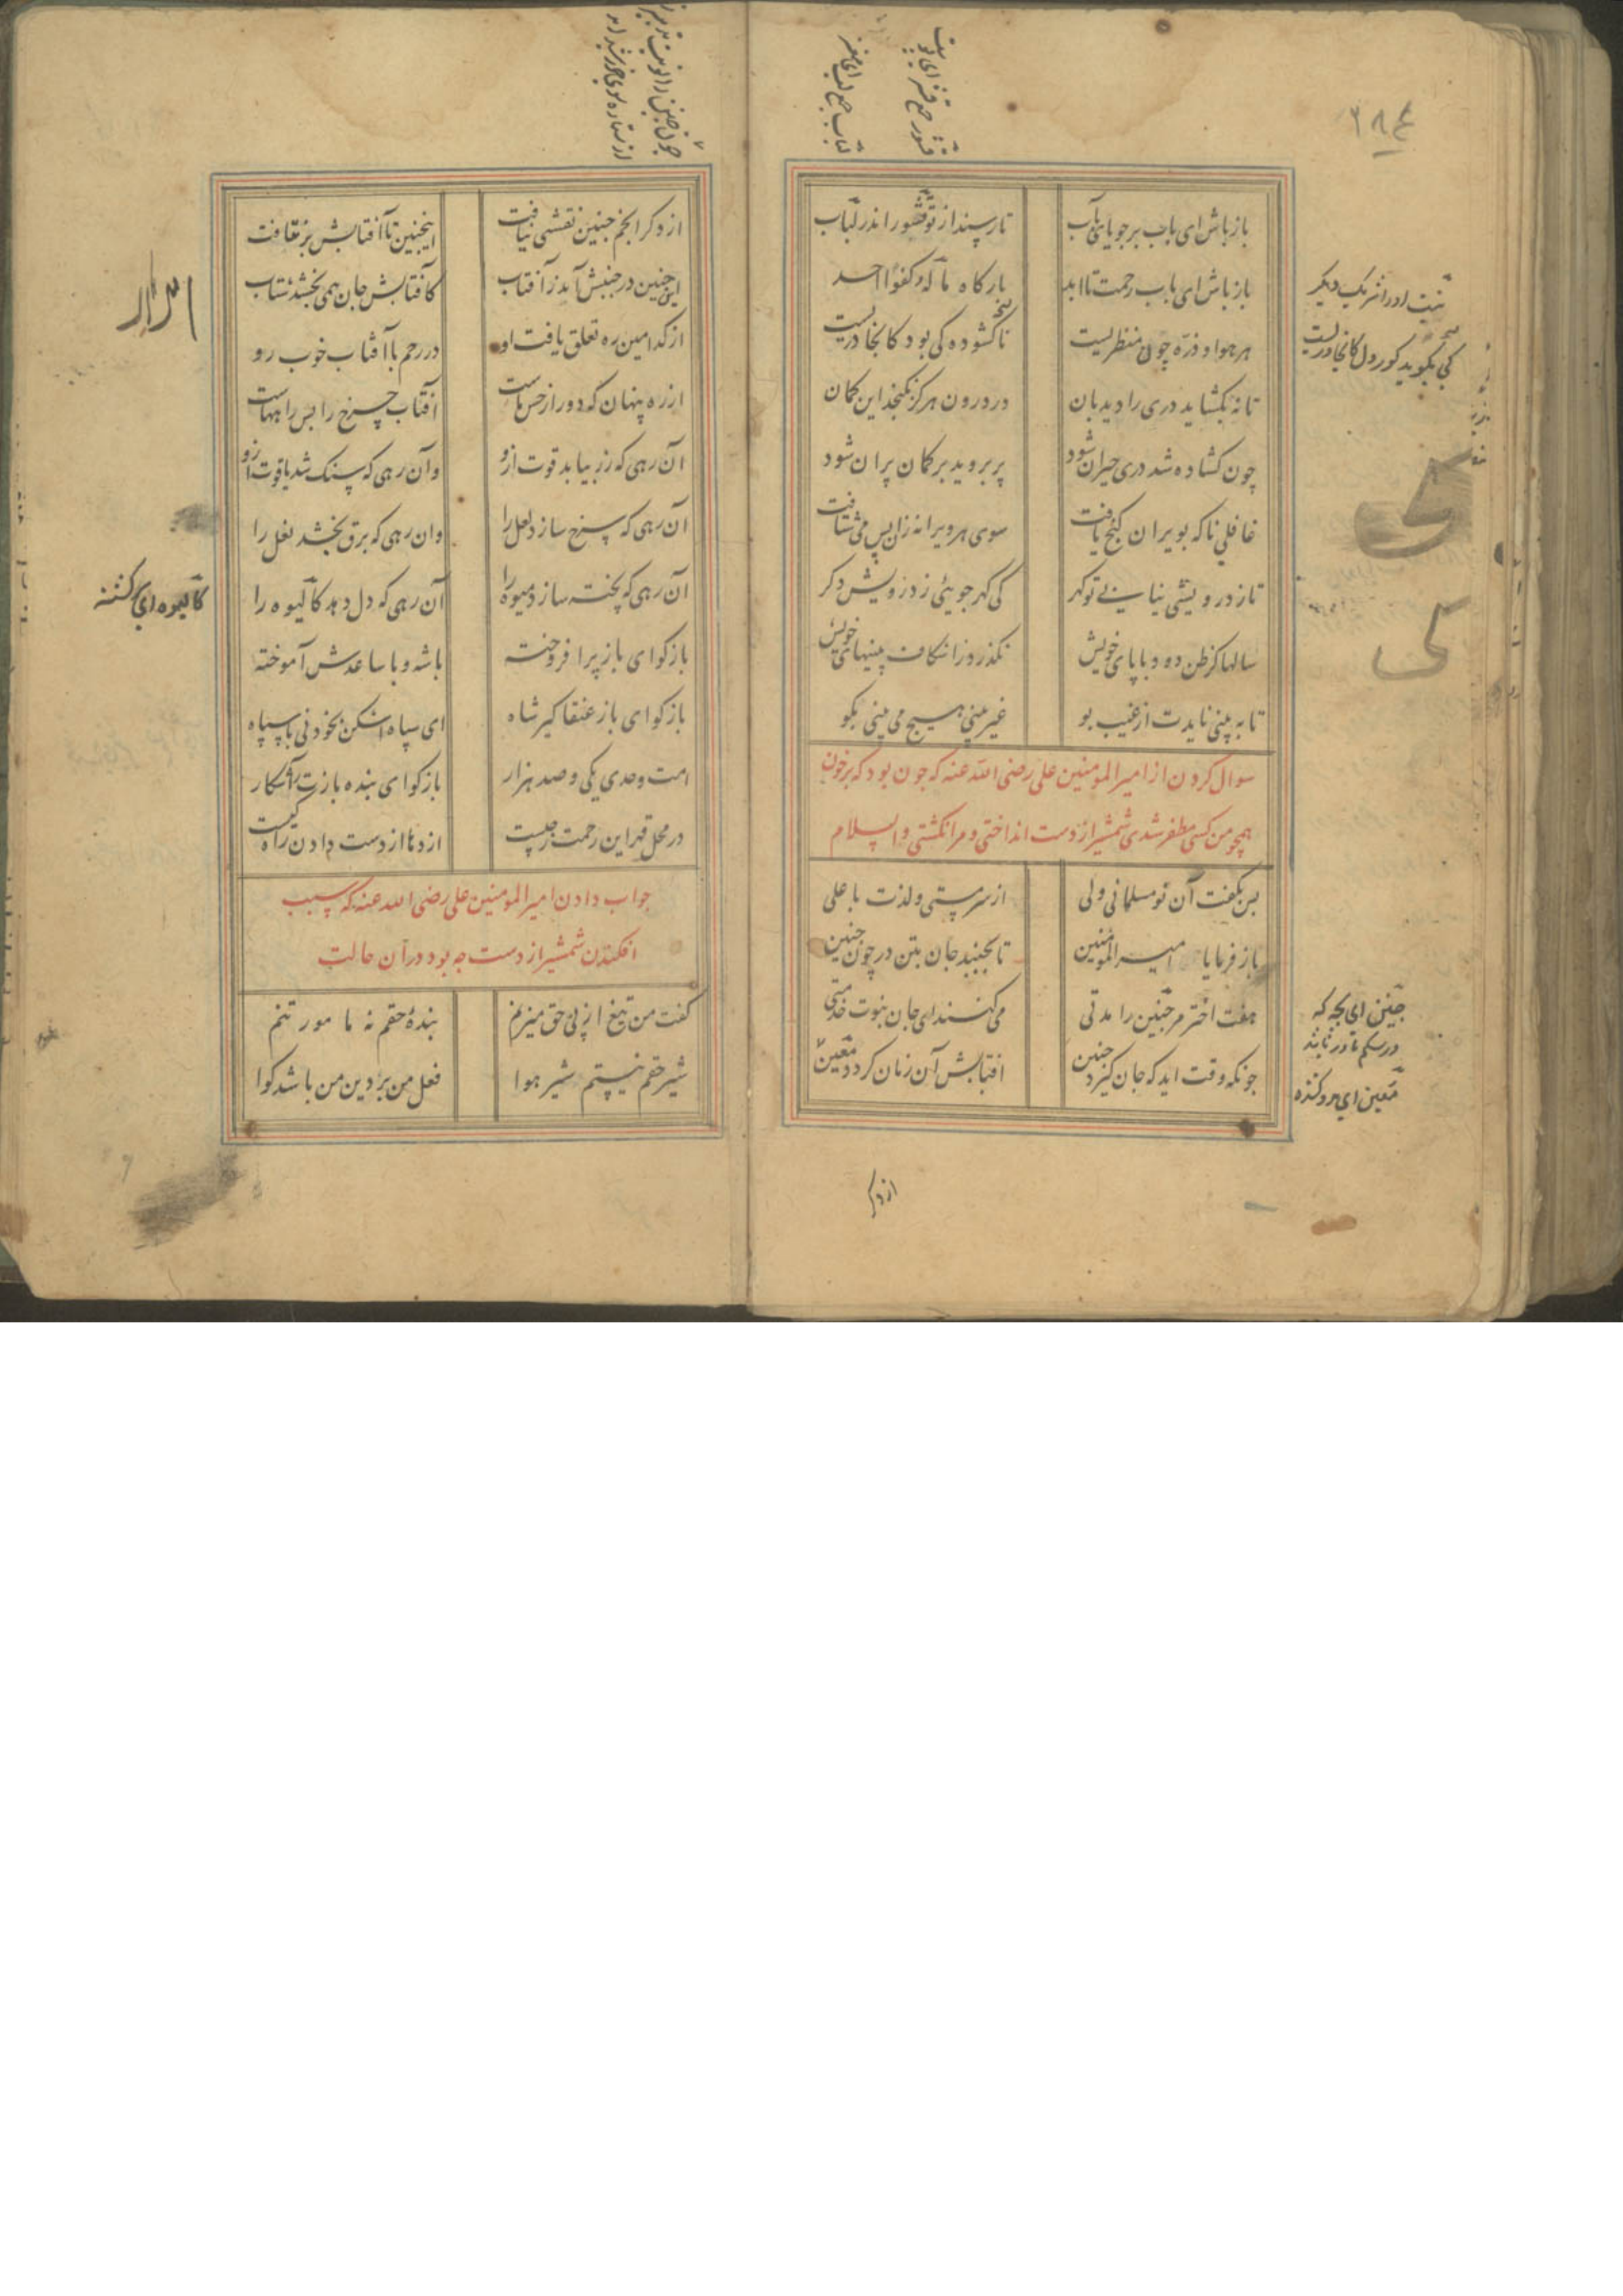 باز باش ای باب بر جویای باب
تا رسند از تو قشور اندر لباب
باز باش ای باب رحمت تا ابد
بارکاه ما له کفوا احد
هر هوا و ذره چون منظریست
ناکشوده کی بود کانجا دریست
تا نه بکشاید دری را دیدبان
در درون هرکز نکنجد این کمان
چون کشاده شد دری حیران شود
پر بروید بر کمان پران شود
غافلی ناکه بویران کنج یافت
سوی هر ویرانه زان پس می شتافت
تا ز درویشی نیابی تو کهر
کی کهر جوئی ز درویش دکر
سالها کر ظن دود با پای خویش
نکذرد ز اشکاف بینیهای خویش
تا به بینی نایدت از غیب بو
غیر بینی هیچ می بینی بکو
سوال کردن از امیر المومنین علی رضی الله عنه که جون بود که بر خون
همچو من کسی مظفر شدی شمشیر از دست انداختی و مرا نکشتی والسلام
بس بکفت آن نو مسلمانی ولی
از سر مستی و لذت با علی
باز فرما یا امیر المومنین
تا بجنبد جان بتن در چون جنین
هفت اختر هر جنین را مدتی
می کنند ای جان بنوبت خدمتی
جونکه وقت اید که جان کیرد جنین
افتابش آن زمان کردد معین
از دکر
از دکر انجم جنین نقشی نیافت
اینجنین تا آفتابش بر نتافت
این جنین در جنبش آید ز آفتاب
کافتابش جان همی بخشد شتاب
از کدامین ره تعلق یافت او
در رحم با آفتاب خوب رو
از ره پنهان که دور از حس ماست
آفتاب چرخ را بس راههاست
آن رهی که زر بیابد قوت ازو
وآن رهی که سنک شد یاقوت ازو
آن رهی که سرخ سازد لعل را
وان رهی که برق بخشد نعل را
آن رهی که پخته سازد میوه را
آن رهی که دل دهد کالیوه را
بازکو ای باز پر افروخته
با شه و با ساعدش آموخته
بازکو ای باز عنقا کیر شاه
ای سپاه اشکن بخود نی با سپاه
امت وحدی یکی و صد هزار
بازکو ای بنده بازت را شکار
در محل قهر این رحمت ز چیست
اژدها را دست دادن راه کیست
جواب دادن امیر المومنین علی رضی الله عنه که سبب
افکندن شمشیر از دست جه بود در آن حالت
کفت من تیغ از پی حق میزنم
بندهٔ حقم نه مامور تنم
شیر حقم نیستم شیر هوا
فعل من بر دین من باشد کوا
۲۸۴
قشور جمع قشر ای پوست
لباب جمع لب ای مغز
نیست او را شریک دیکر
جنین ای بجه که
در شکم مادر باشد
معین ای مدد کننده
کالیوه ای کشته